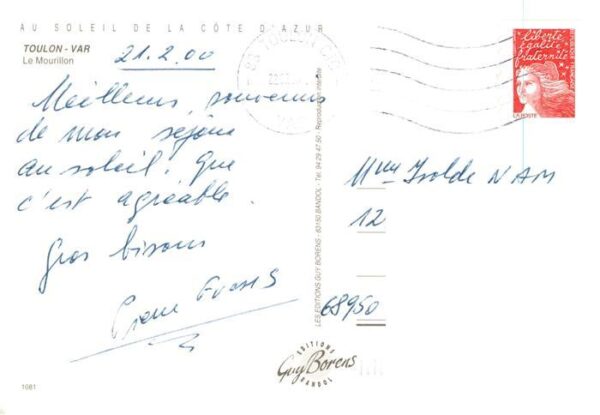 AU SOLEIL DE LA CÔTE D'AZUR
TOULON - VAR
Le Mourillon
21.2.00
Meilleurs souvenirs
de mon séjour
au soleil. Que
c'est agréable.
Gros bisous
Pierre
LES EDITIONS GUY BORENS - 83150 BANDOL - Tel. 04 29 47 50 - Reproduction interdite
83 TOULON
liberté
égalité
fraternité
LA POSTE
Mme Isolde NAM
12
68950
EDITIONS
Guy Bórens
BANDOL
1681